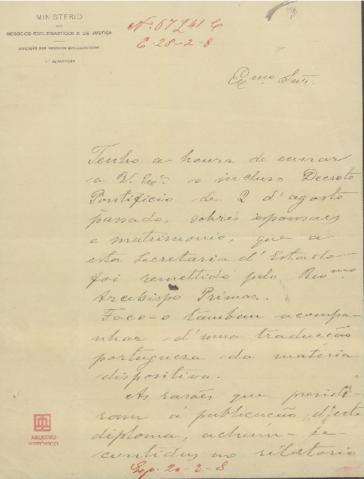 MINISTERIO
DOS
NEGOCIOS ECCLESIASTICOS E DE JUSTIÇA
DIRECÇÃO DOS NEGOCIOS ECCLESIASTICOS
1ª REPARTIÇÃO
E 28-2-8
Exmo Snr.
Tenho a honra de enviar
a V. Exª o incluso Decreto
Pontificio de 2 d'agosto
passado, sobre esponsaes
e matrimonio, que a
esta Secretaria d'Estado
foi remettido pelo Revmo
Arcebispo Primaz.
Faço-o tambem acompa-
nhar d'uma traducção
portugueza da materia
dispositiva.
As rasões que presidi-
ram á publicação d'este
diploma, acham-se
contidas no relatorio
ARQUIVO
HISTÓRICO
Exp. 20-2-8